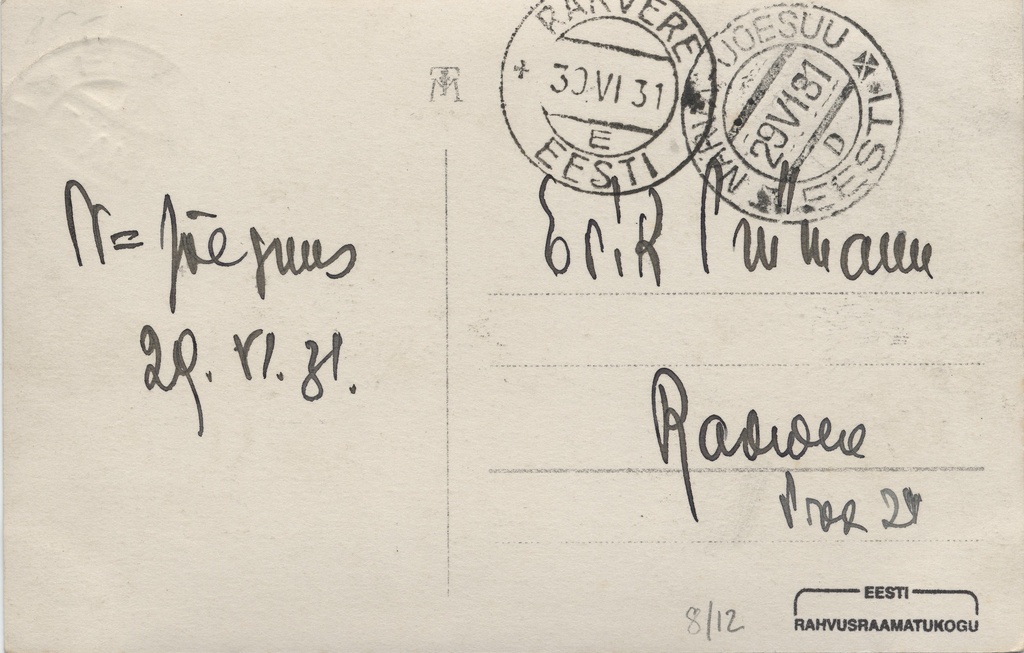 RAKVERE
30 VI 31
E
EESTI
NARVA JÕESUU
29 VI 31
D
EESTI
N= Jõesuus
29. VI. 31.
Erik
Rakvere
24
8/12
EESTI
RAHVUSRAAMATUKOGU